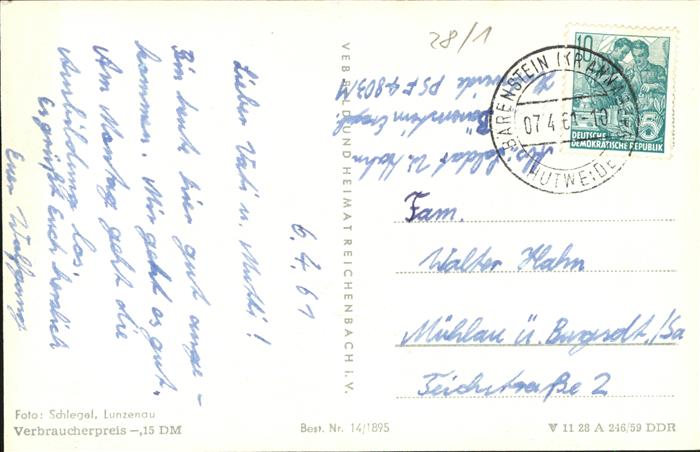 28/1
6.4.61
Lieber Vati u. Mutti!
Bin heute hier gut ange-
kommen. Mir geht es gut.
Am Montag geht die
Ausbildung los.
Es grüßt Euch herzlich
Euer Wolfgang
Foto: Schlegel, Lunzenau
Verbraucherpreis –,15 DM
VEB BILD UND HEIMAT REICHENBACH i. V.
Best. Nr. 14/1895
Soldat W. Hahn
Bärenstein Erzgeb.
PSF 4803M
10
DEUTSCHE
DEMOKRATISCHE REPUBLIK
BÄRENSTEIN (KR ANNAB
07.4.61-10
HUTWEIDE
Fam.
Walter Hahn
Mühlau ü. Burgsdt./Sa
Teichstraße 2
V 11 28 A 246/59 DDR